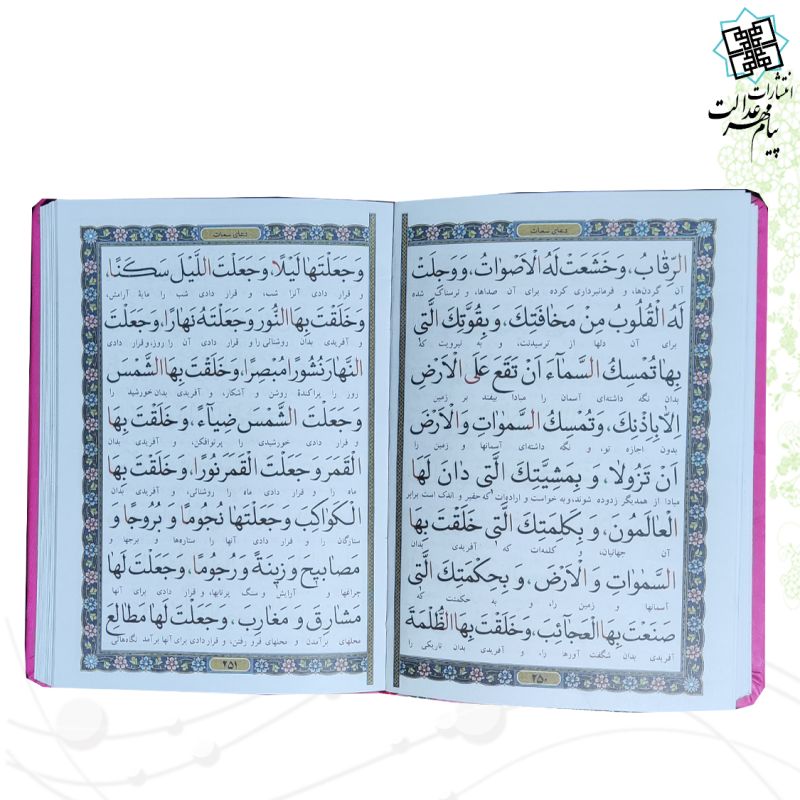 انتشارات
پیام مهر عدالت
دعای سمات
الرِّقَابُ، وَ خَشَعَتْ لَهُ الْاَصْوَاتُ، وَ وَجِلَتْ
آن گردن‌ها، و فرمانبرداری کرده برای آن صداها، و ترسناک شده
لَهُ الْقُلُوبُ مِنْ مَخَافَتِكَ، وَ بِقُوَّتِكَ الَّتی
برای آن دلها از ترسیدنت، و به نیرویت که
بِهَا تُمْسِكُ السَّمَآءَ اَنْ تَقَعَ عَلَی الْاَرْضِ
بدان نگه داشته‌ای آسمان را مبادا بیفتد بر زمین
اِلاّ بِاِذْنِكَ، وَ تُمْسِكُ السَّمٰوَاتِ وَ الْاَرْضَ
بدون اجازه تو، و نگه داشته‌ای آسمانها و زمین را
اَنْ تَزُولَا، وَ بِمَشِيَّتِكَ الَّتی دَانَ لَهَا
مبادا از همدیگر زدوده شوند، وبه خواست و اراده‌ات که حقیر و اندک است برابر
الْعَالَمُونَ، وَ بِكَلِمَتِكَ الَّتی خَلَقْتَ بِهَا
آن جهانیان، و کلمه‌ات که آفریدی بدان
السَّمٰوَاتِ وَ الْاَرْضَ، وَ بِحِكْمَتِكَ الَّتی
آسمانها و زمین را، و به حکمتت که
صَنَعْتَ بِهَا الْعَجَآئِبَ، وَ خَلَقْتَ بِهَا الظُّلْمَةَ
آفریدی بدان شگفت آورها را، و آفریدی بدان تاریکی را
۲۵۰
دعای سمات
وَ جَعَلْتَهَا لَيْلًا، وَ جَعَلْتَ اللَّيْلَ سَكَنًا،
و قرار دادی آنرا شب، و قرار دادی شب را مایهٔ آرامش،
وَ خَلَقْتَ بِهَا النُّورَ وَ جَعَلْتَهُ نَهَارًا، وَ جَعَلْتَ
و آفریدی بدان روشنائی را و قرار دادی آن را روز، و قرار دادی
النَّهَارَ نُشُورًا مُبْصِرًا، وَ خَلَقْتَ بِهَا الشَّمْسَ
روز را پراکندهٔ روشن و آشکار، و آفریدی بدان خورشید را
وَ جَعَلْتَ الشَّمْسَ ضِيَآءً، وَ خَلَقْتَ بِهَا
و قرار دادی خورشیدی را پرتوافکن، و آفریدی بدان
الْقَمَرَ وَ جَعَلْتَ الْقَمَرَ نُورًا، وَ خَلَقْتَ بِهَا
ماه را و قرار دادی ماه را روشنائی، و آفریدی بدان
الْكَوَاكِبَ وَ جَعَلْتَهَا نُجُومًا وَ بُرُوجًا وَ
ستارگان را و قرار دادی آنها را ستاره‌ها و برجها و
مَصَابِيحَ وَ زِينَةً وَ رُجُومًا، وَ جَعَلْتَ لَهَا
چراغها و آرایش و سنگ پرتابها، و قرار دادی برای آنها
مَشَارِقَ وَ مَغَارِبَ، وَ جَعَلْتَ لَهَا مَطَالِعَ
محلهای برآمدن و محلهای فرو رفتن، و قرار دادی برای آنها برآمد نگاه‌هائی
۲۵۱